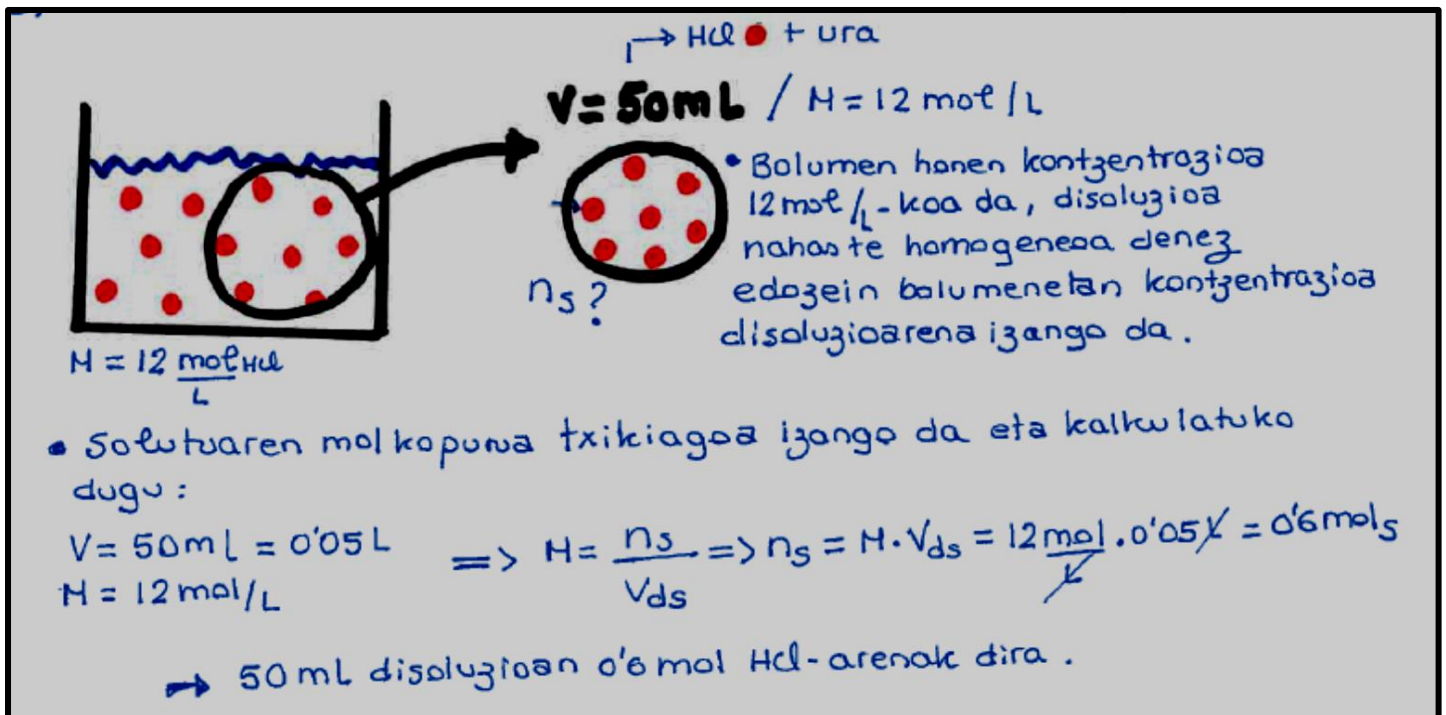 → HCl + ura
V = 50 mL / M = 12 mol/L
• Bolumen honen kontzentrazioa
12 mol/L-koa da, disoluzioa
nahaste homogeneoa denez
edozein bolumenetan kontzentrazioa
disoluzioarena izango da.
ns?
M = 12 mol HCl / L
• Solutuaren mol kopurua txikiagoa izango da eta kalkulatuko
dugu:
V = 50 ml = 0'05 L => M = ns / Vds => ns = M · Vds = 12 mol / L · 0'05 L = 0'6 mols
M = 12 mol/L
→ 50 mL disoluzioan 0'6 mol HCl-arenak dira.